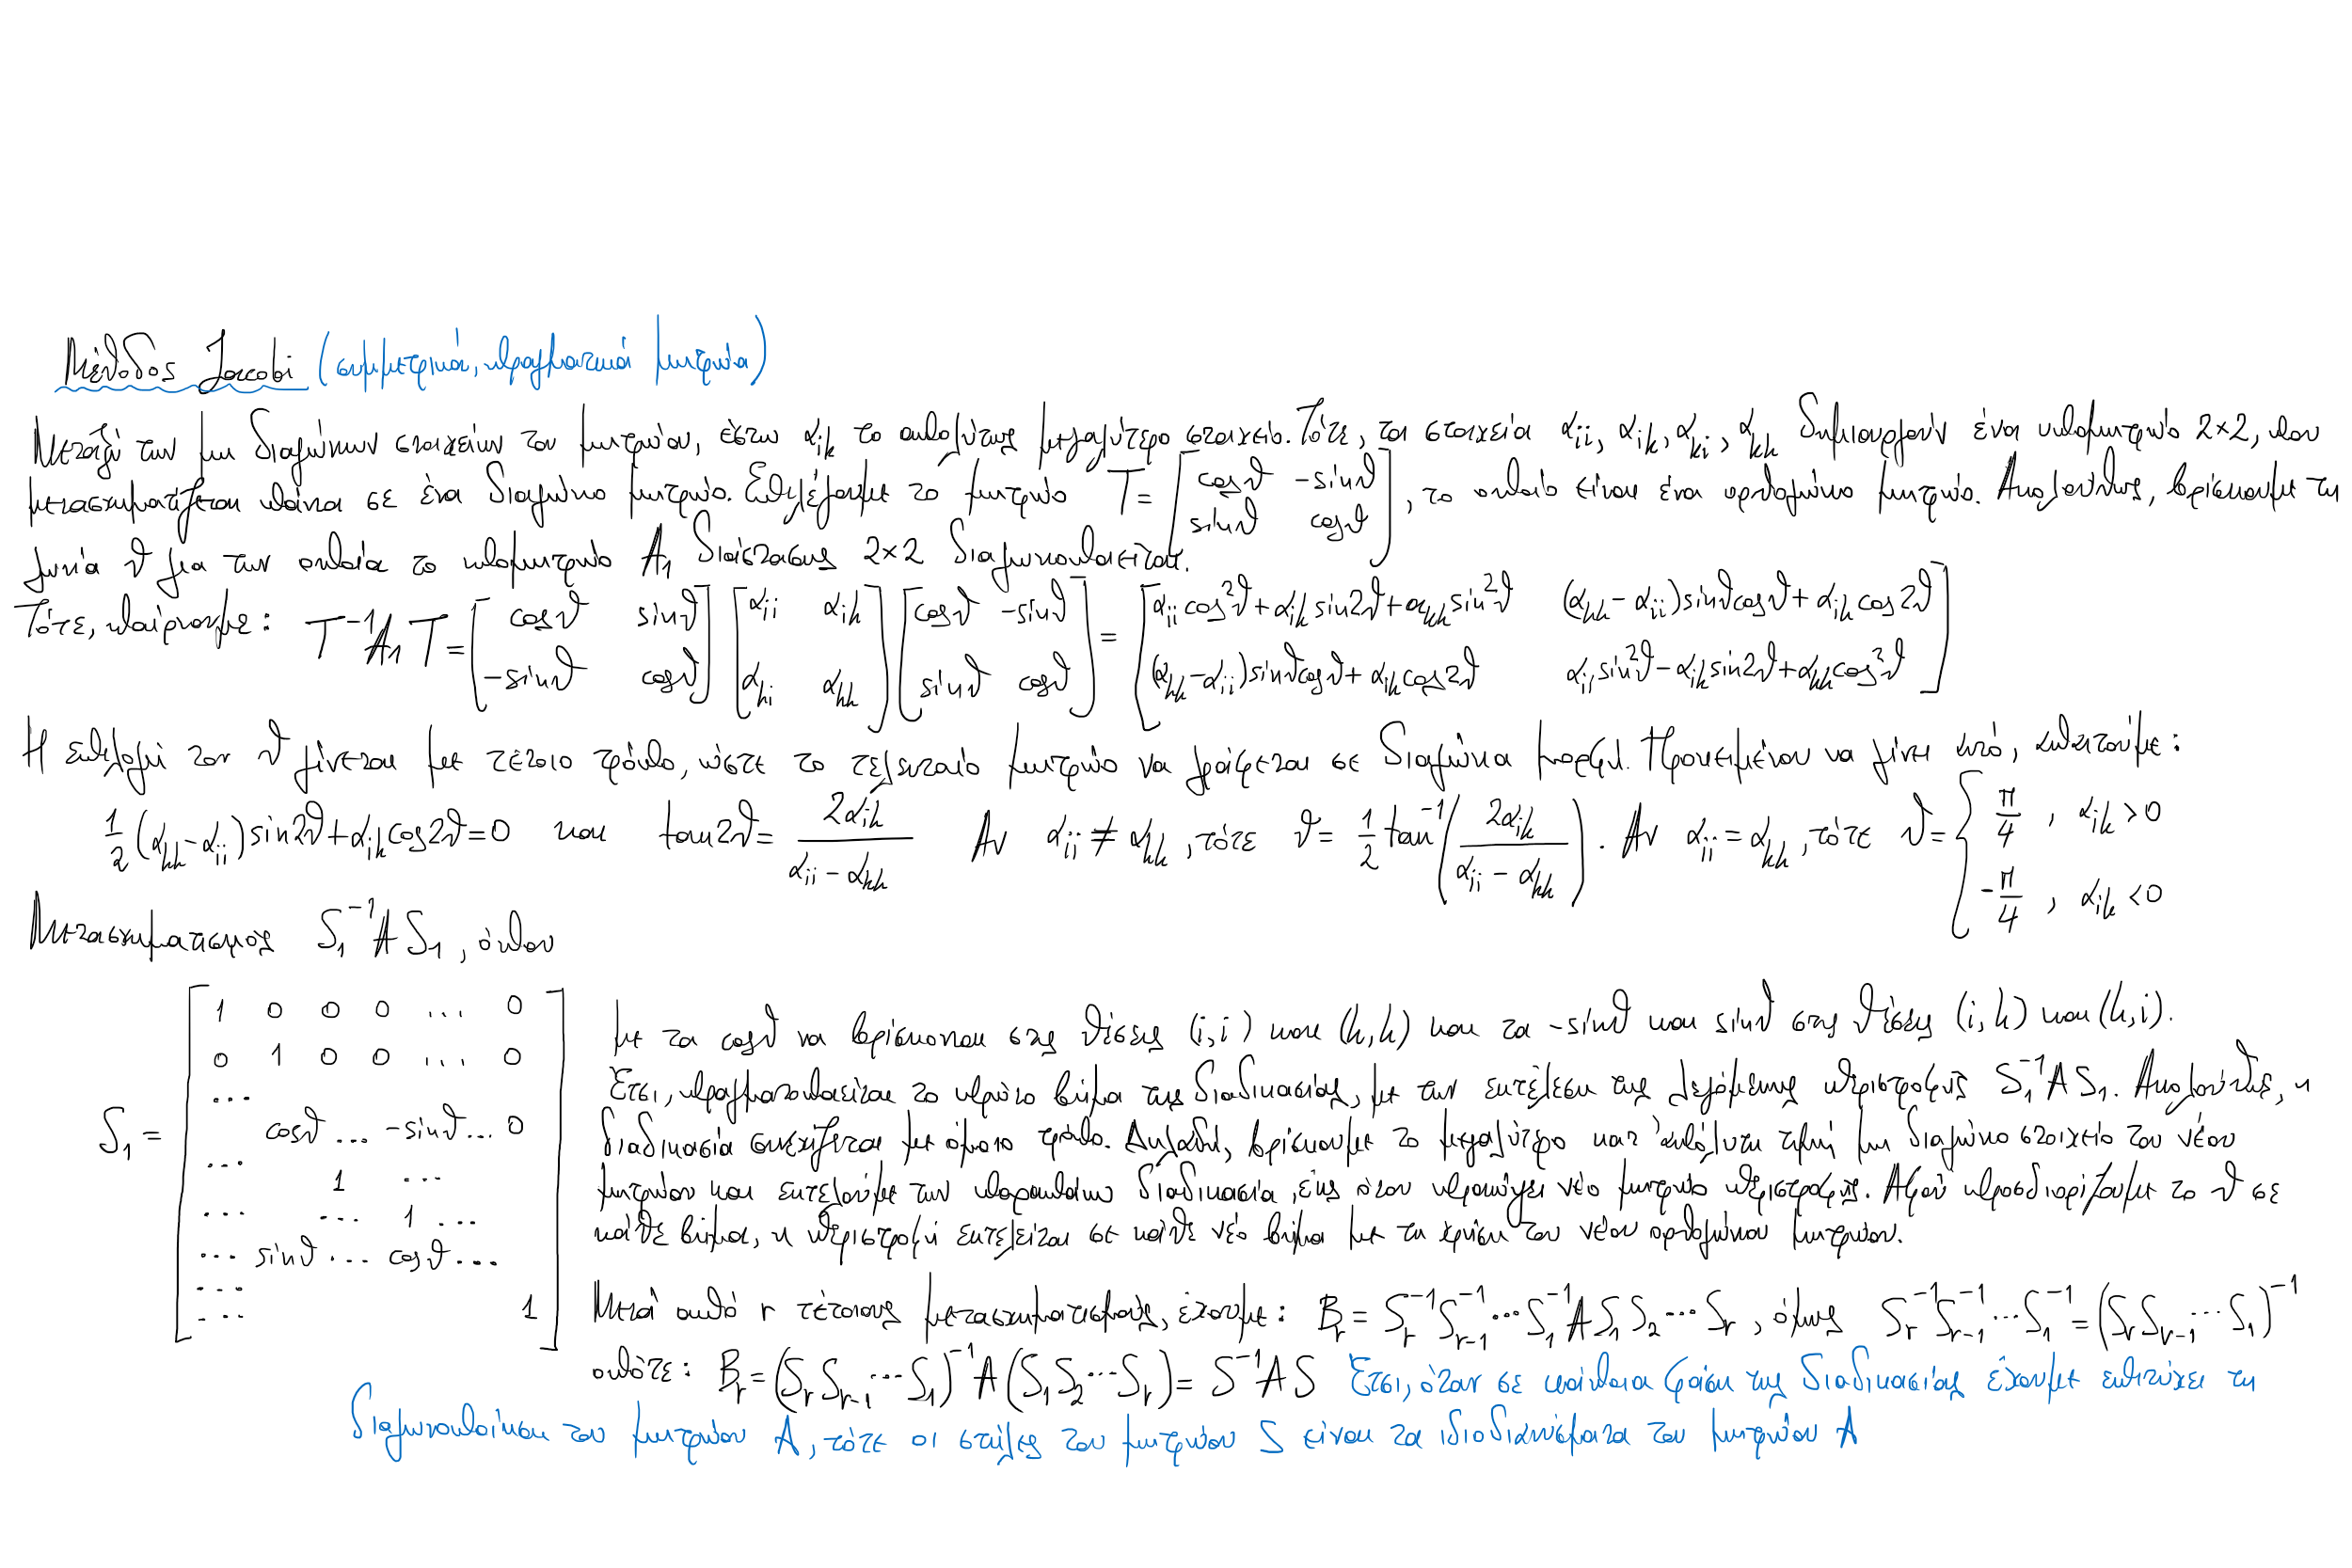 Μέθοδος Jacobi (συμμετρικά, πραγματικά μητρώα)
Μεταξύ των μη διαγώνιων στοιχείων του μητρώου, έστω α_{ik} το απολύτως μεγαλύτερο στοιχείο. Τότε, τα στοιχεία α_{ii}, α_{ik}, α_{ki}, α_{kk} δημιουργούν ένα υπομητρώο 2×2, που
μετασχηματίζεται πάντα σε ένα διαγώνιο μητρώο. Επιλέγουμε το μητρώο T = [cosθ -sinθ; sinθ cosθ], το οποίο είναι ένα ορθογώνιο μητρώο. Ακολούθως, βρίσκουμε τη
γωνία θ για την οποία το υπομητρώο A_1 διάστασης 2×2 διαγωνοποιείται.
Τότε, παίρνουμε: T^{-1}A_1T = [cosθ sinθ; -sinθ cosθ] [α_{ii} α_{ik}; α_{ki} α_{kk}] [cosθ -sinθ; sinθ cosθ] = [α_{ii}cos²θ+α_{ik}sin2θ+α_{kk}sin²θ (α_{kk}-α_{ii})sinθcosθ+α_{ik}cos2θ; (α_{kk}-α_{ii})sinθcosθ+α_{ik}cos2θ α_{ii}sin²θ-α_{ik}sin2θ+α_{kk}cos²θ]
Η επιλογή του θ γίνεται με τέτοιο τρόπο, ώστε το τελευταίο μητρώο να γράφεται σε διαγώνια μορφή. Προκειμένου να γίνει αυτό, απαιτούμε:
1/2 (α_{kk}-α_{ii})sin2θ+α_{ik}cos2θ=0 και tan2θ = 2α_{ik}/(α_{ii}-α_{kk}) Αν α_{ii} ≠ α_{kk}, τότε θ = 1/2 tan^{-1}(2α_{ik}/(α_{ii}-α_{kk})). Αν α_{ii} = α_{kk}, τότε θ = { π/4, α_{ik}>0; -π/4, α_{ik}<0
Μετασχηματισμός S_1^{-1}AS_1, όπου
S_1 = [
1 0 0 0 ... 0
0 1 0 0 ... 0
...
cosθ ... -sinθ ... 0
...
1 ...
... ... 1 ...
... sinθ ... cosθ ...
...
... 1
]
με τα cosθ να βρίσκονται στις θέσεις (i,i) και (k,k) και τα -sinθ και sinθ στις θέσεις (i,k) και (k,i).
Έτσι, πραγματοποιείται το πρώτο βήμα της διαδικασίας, με την εκτέλεση της λεγόμενης περιστροφής S_1^{-1}AS_1. Ακολούθως, η
διαδικασία συνεχίζεται με όμοιο τρόπο. Δηλαδή, βρίσκουμε το μεγαλύτερο κατ' απόλυτη τιμή μη διαγώνιο στοιχείο του νέου
μητρώου και εκτελούμε την παραπάνω διαδικασία, έως ότου προκύψει νέο μητρώο περιστροφής. Αφού προσδιορίζουμε το θ σε
κάθε βήμα, η περιστροφή εκτελείται σε κάθε νέο βήμα με τη χρήση του νέου ορθογώνιου μητρώου.
Μετά από r τέτοιους μετασχηματισμούς, έχουμε: B_r = S_r^{-1}S_{r-1}^{-1}...S_1^{-1}AS_1S_2...S_r, όμως S_r^{-1}S_{r-1}^{-1}...S_1^{-1} = (S_rS_{r-1}...S_1)^{-1}
οπότε: B_r = (S_rS_{r-1}...S_1)^{-1}A(S_1S_2...S_r) = S^{-1}AS Έτσι, όταν σε κάποια φάση της διαδικασίας έχουμε επιτύχει τη
διαγωνοποίηση του μητρώου A, τότε οι στήλες του μητρώου S είναι τα ιδιοδιανύσματα του μητρώου A